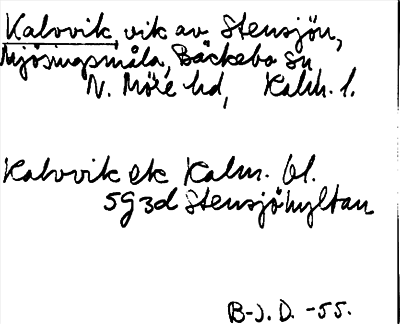 Kalvvik, vik av Stensjön,
Mjösingsmåla, Bäckebo sn
N. Möre hd, Kalm. l.
Kalvvik ek Kalm. bl.
5g3d Stensjöhyltan
B-J. D. -55.